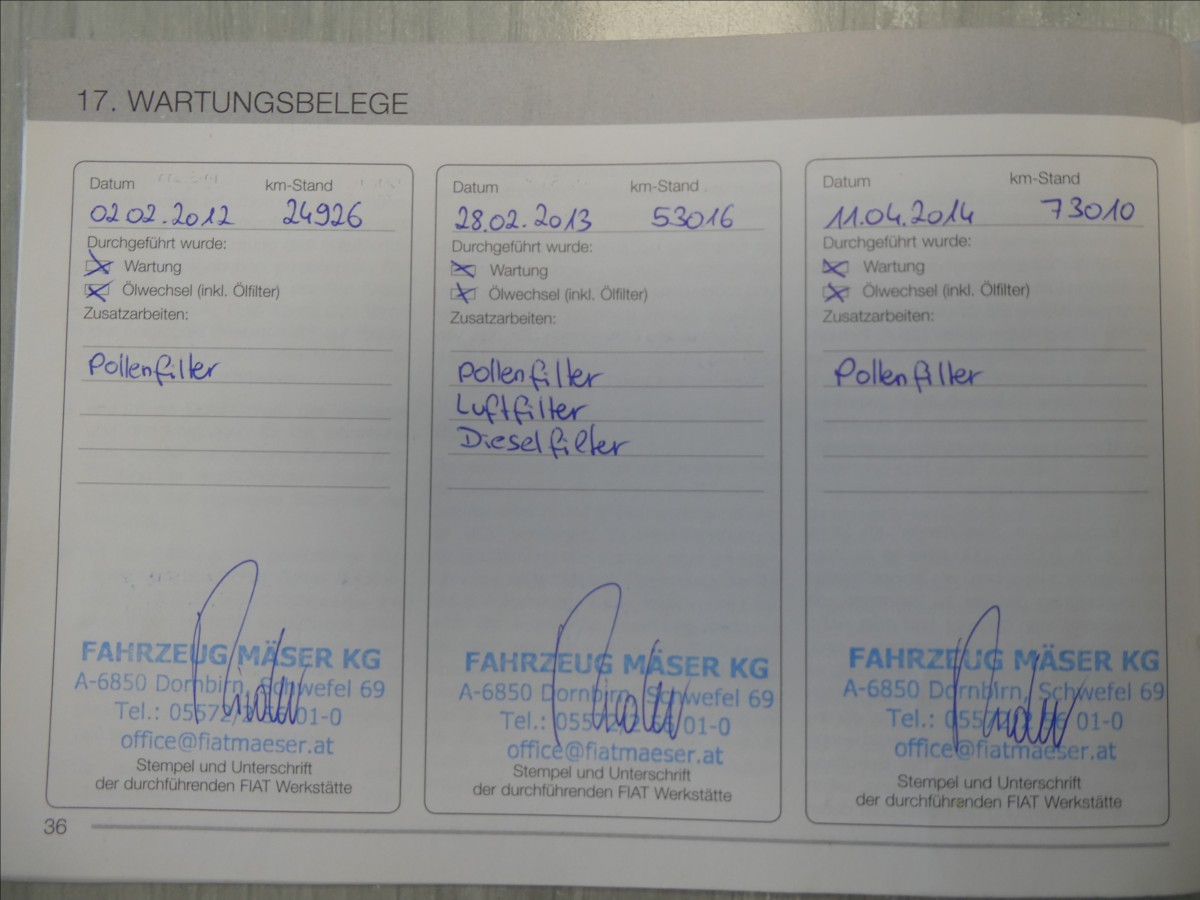 17. WARTUNGSBELEGE
Datum km-Stand
02.02.2012 24926
Durchgeführt wurde:
Wartung
Ölwechsel (inkl. Ölfilter)
Zusatzarbeiten:
Pollenfilter
FAHRZEUG MÄSER KG
A-6850 Dornbirn, Schwefel 69
Tel.: 05572/ 01-0
office@fiatmaeser.at
Stempel und Unterschrift
der durchführenden FIAT Werkstätte
Datum km-Stand
28.02.2013 53016
Durchgeführt wurde:
Wartung
Ölwechsel (inkl. Ölfilter)
Zusatzarbeiten:
Pollenfilter
Luftfilter
Dieselfilter
FAHRZEUG MÄSER KG
A-6850 Dornbirn, Schwefel 69
Tel.: 01-0
office@fiatmaeser.at
Stempel und Unterschrift
der durchführenden FIAT Werkstätte
Datum km-Stand
11.04.2014 73010
Durchgeführt wurde:
Wartung
Ölwechsel (inkl. Ölfilter)
Zusatzarbeiten:
Pollenfilter
FAHRZEUG MÄSER KG
A-6850 Dornbirn, Schwefel 69
Tel.: 01-0
office@fiatmaeser.at
Stempel und Unterschrift
der durchführenden FIAT Werkstätte
36